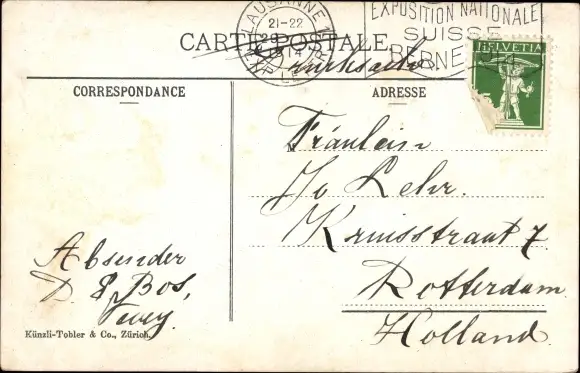 LAUSANNE 1
21-22
EXP. LETTR.
EXPOSITION NATIONALE
SUISSE
BERNE 1914
CARTE POSTALE
Drucksache
HELVETIA
CORRESPONDANCE
ADRESSE
M
Fräulein
Jo Lehr.
Kruisstraat 7.
Rotterdam
Holland.
Absender
D. Bos,
Vevey.
Künzli-Tobler & Co., Zürich.